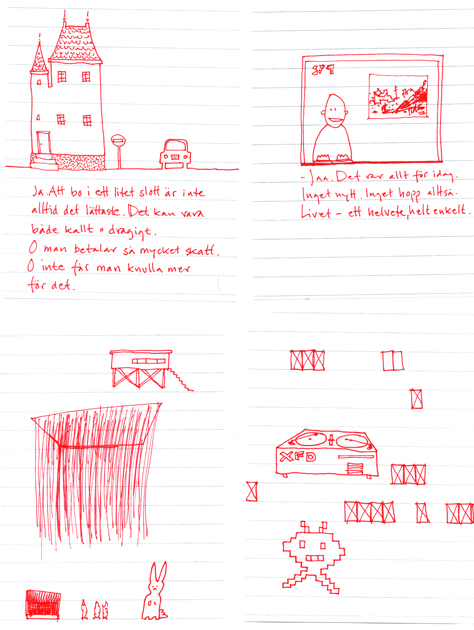 Ja. Att bo i ett litet slott är inte
alltid det lättaste. Det kan vara
både kallt o dragigt.
O man betalar så mycket skatt.
O inte får man knulla mer
för det.
- Jaa. Det var allt för idag.
Inget nytt. Inget hopp alltså.
Livet - ett helvete, helt enkelt.
XFD